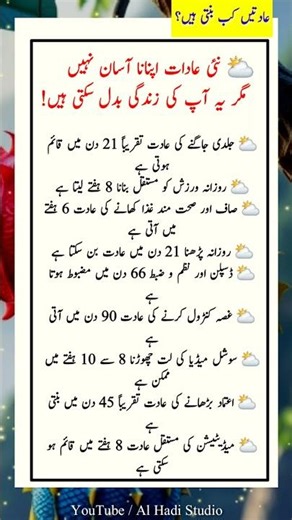 عادتیں کب بنتی ہیں؟
نئی عادات اپنانا آسان نہیں
مگر یہ آپ کی زندگی بدل سکتی ہیں!
جلدی جاگنے کی عادت تقریباً 21 دن میں قائم
ہوتی ہے
روزانہ ورزش کو مستقل بنانا 8 ہفتے لیتا ہے
صاف اور صحت مند غذا کھانے کی عادت 6 ہفتے
میں آتی ہے
روزانہ پڑھنا 21 دن میں عادت بن سکتا ہے
ڈسپلن اور نظم و ضبط 66 دن میں مضبوط ہوتا
ہے
غصہ کنٹرول کرنے کی عادت 90 دن میں آتی
ہے
سوشل میڈیا کی لت چھوڑنا 8 سے 10 ہفتے میں
ممکن ہے
اعتماد بڑھانے کی عادت تقریباً 45 دن میں بنتی
ہے
میڈیٹیشن کی مستقل عادت 8 ہفتے میں قائم ہو
سکتی ہے
YouTube / Al Hadi Studio